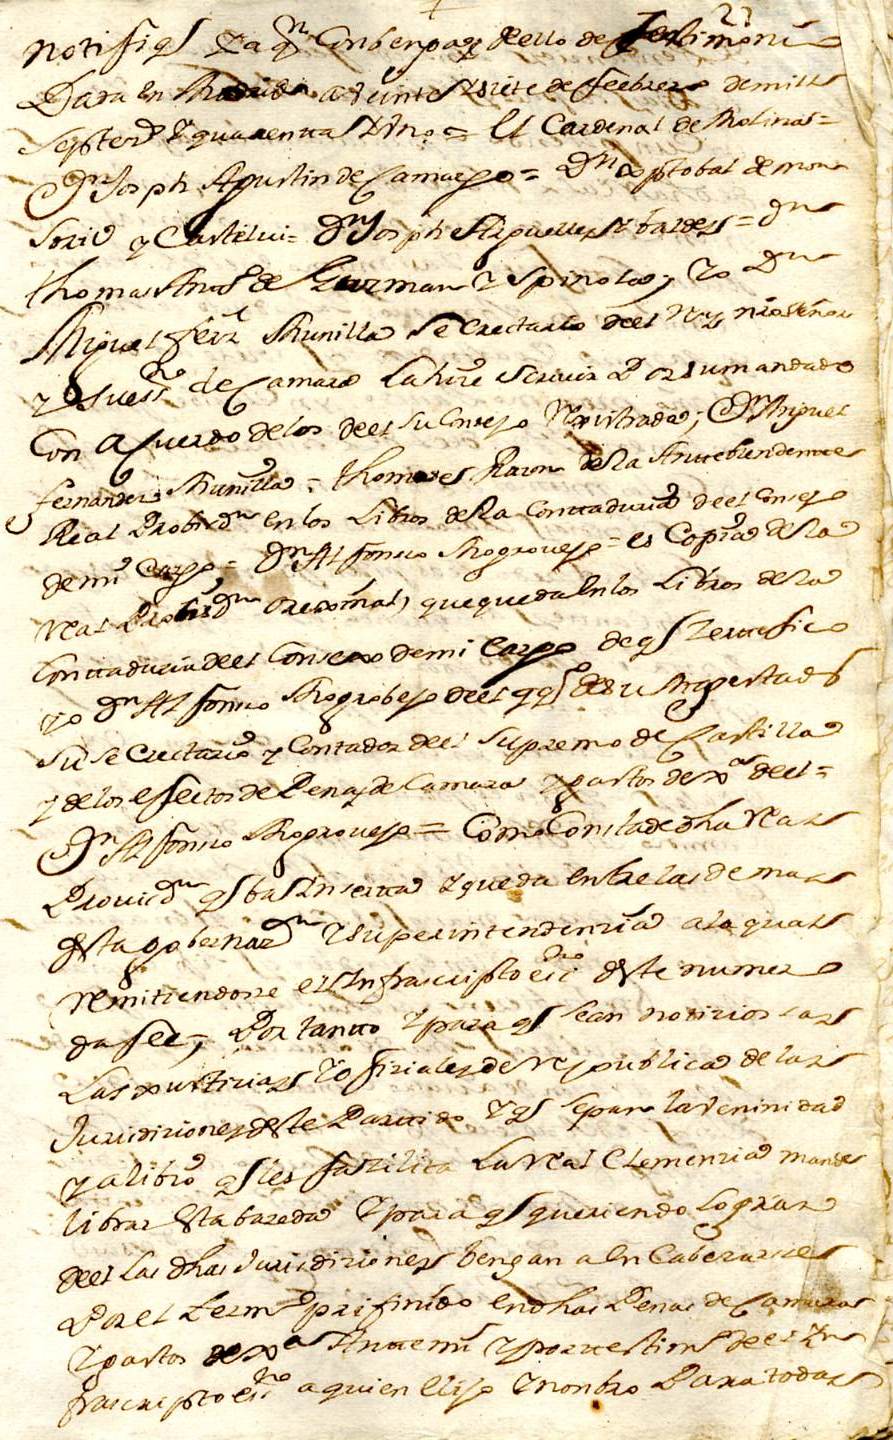 notifiqe Y a qn Conbenga y de ello de testimonio
Dada en Madrid a veinte y siete de febrero de mill
septecs y quarenta y Vno = El Cardenal de Molina =
Dn Joseph Agustin de Camargo = Dn xptobal de Mon
Sorio y Castelvi = Dn Joseph Arguelles y baldes = Dn
thomas Anto de Guzman y Spinola; Yo Dn
Miguel ferz Munilla Secrectario de el Rey nro señor
y su essno de Camara la hize escriuir Por su mandado
Con aCuerdo de los de el su Consejo Rexistrada; Dn Miguel
fernandez Munilla = thomose Razon de la Antecedente
Real Probisn en los Libros de la Contaduria de el Consejo
de mi Cargo = Dn Alfonso Mogrouejo = es Copia de la
real Probisn orexinal, que queda en los Libros de la
Contaduria de el Consexo de mi Cargo de qe Zertifico
yo Dn Alfonso Mogrobejo de el de su Magestad
su seCrectario y Contador de el Supremo de Castilla
y de los efectos de Penas de Camara y gastos de xa de el =
Dn Alfonso Mogrouejo = Como Consta de dha real
Prouisn qe ba Inserta y queda entre las demas
desta gobernazn y superintendenzia a la qual
remitiendome el Infrascripto essno deste numero
da fee; Por tanto y para qe sean notizios as
Las xustizias y ofiziales de republica de las
Jurisdiziones deste Partido y qe sepan la veninidad
y alibio qe les fazilita La real Clemenzia mande
librar esta bareda y para qe queriendo lograr
de el Las dhas Jurisdiziones bengan a enCabezarse
Por el termo prifinido en dhas Penas de Camara
y gastos de xa Ante mi y por testimo de el In
frascripto essno a quien elijo y nonbro Para todas